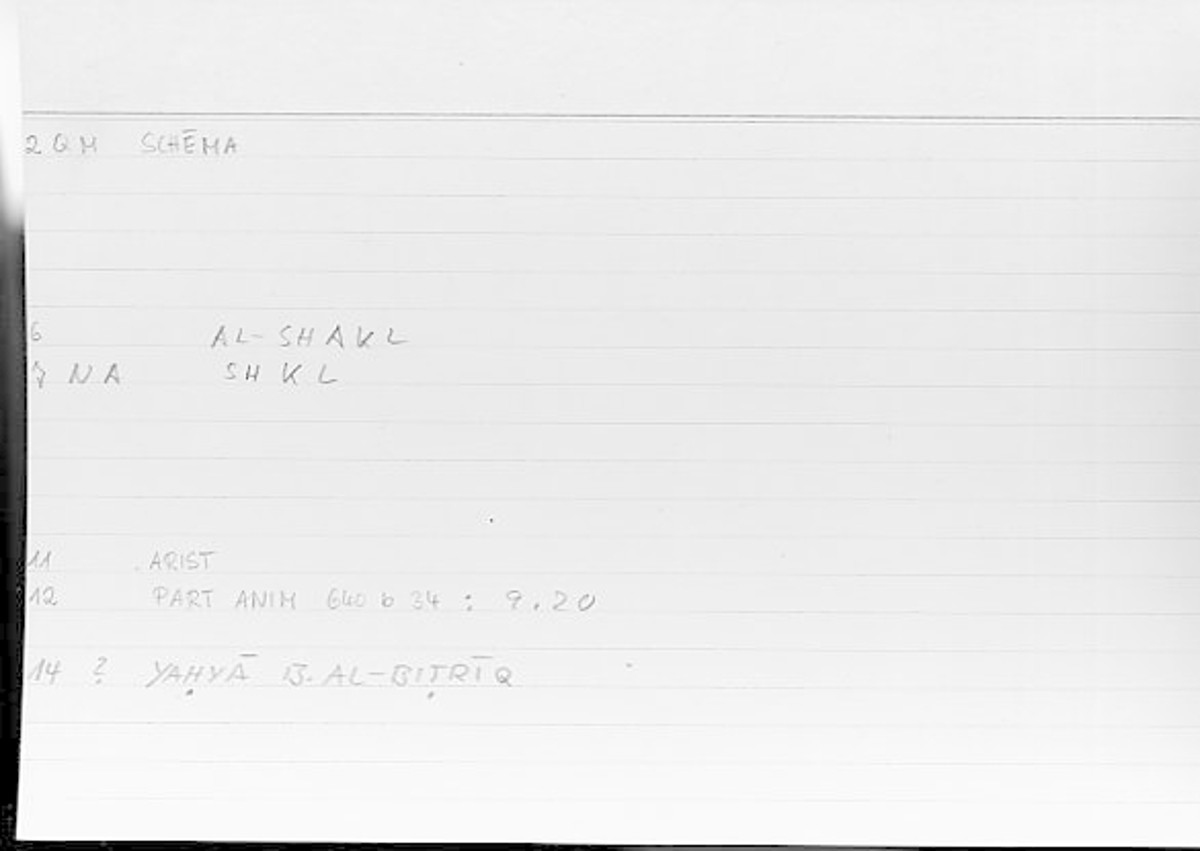 2 Q M SCHĒMA
6 AL-SHAKL
7 N A SH K L
11 ARIST
12 PART ANIM 640 b 34 : 9.20
14 ? YAḤYĀ B. AL-BIṬRĪQ